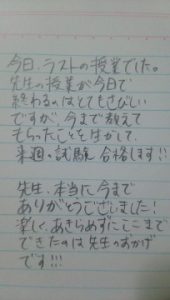 今日、ラストの授業でした。
先生の授業が今日で
終わるのはとてもさびしい
ですが、今まで教えて
もらったことを生かして、
来週の試験 合格します!!
先生、本当に今まで
ありがとうございました!
楽しく、あきらめずにここまで
できたのは先生のおかげ
です!!!